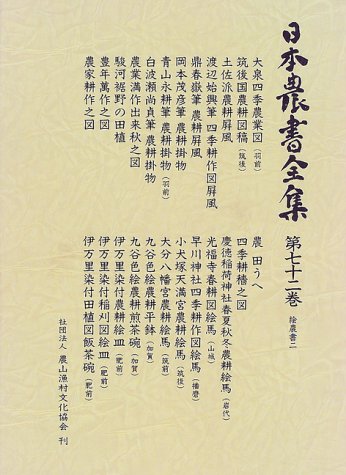 日本農書全集
第七十二巻 絵農書二
大泉四季農業図（羽前）
筑後国農耕図稿（筑後）
土佐派農耕屏風
渡辺始興筆 四季耕作図屏風
鼎春嶽筆農耕屏風
岡本茂彦筆 農耕掛物
青山永耕筆 農耕掛物（羽前）
白波瀬尚貞筆 農耕掛物
農業満作出来秋之図
駿河裾野の田植
豊年萬作之図
農家耕作之図
農田うへ
四季耕穡之図
慶徳稲荷神社春夏秋冬農耕絵馬（岩代）
光福寺春耕図絵馬（山城）
早川神社四季耕作図絵馬（播磨）
小犬塚天満宮農耕絵馬（筑後）
大分八幡宮農耕絵馬（筑前）
九谷色絵農耕平鉢（加賀）
九谷色絵農耕煎茶碗（加賀）
伊万里染付農耕絵皿（肥前）
伊万里染付稲刈図絵皿（肥前）
伊万里染付田植図飯茶碗（肥前）
社団法人 農山漁村文化協会 刊